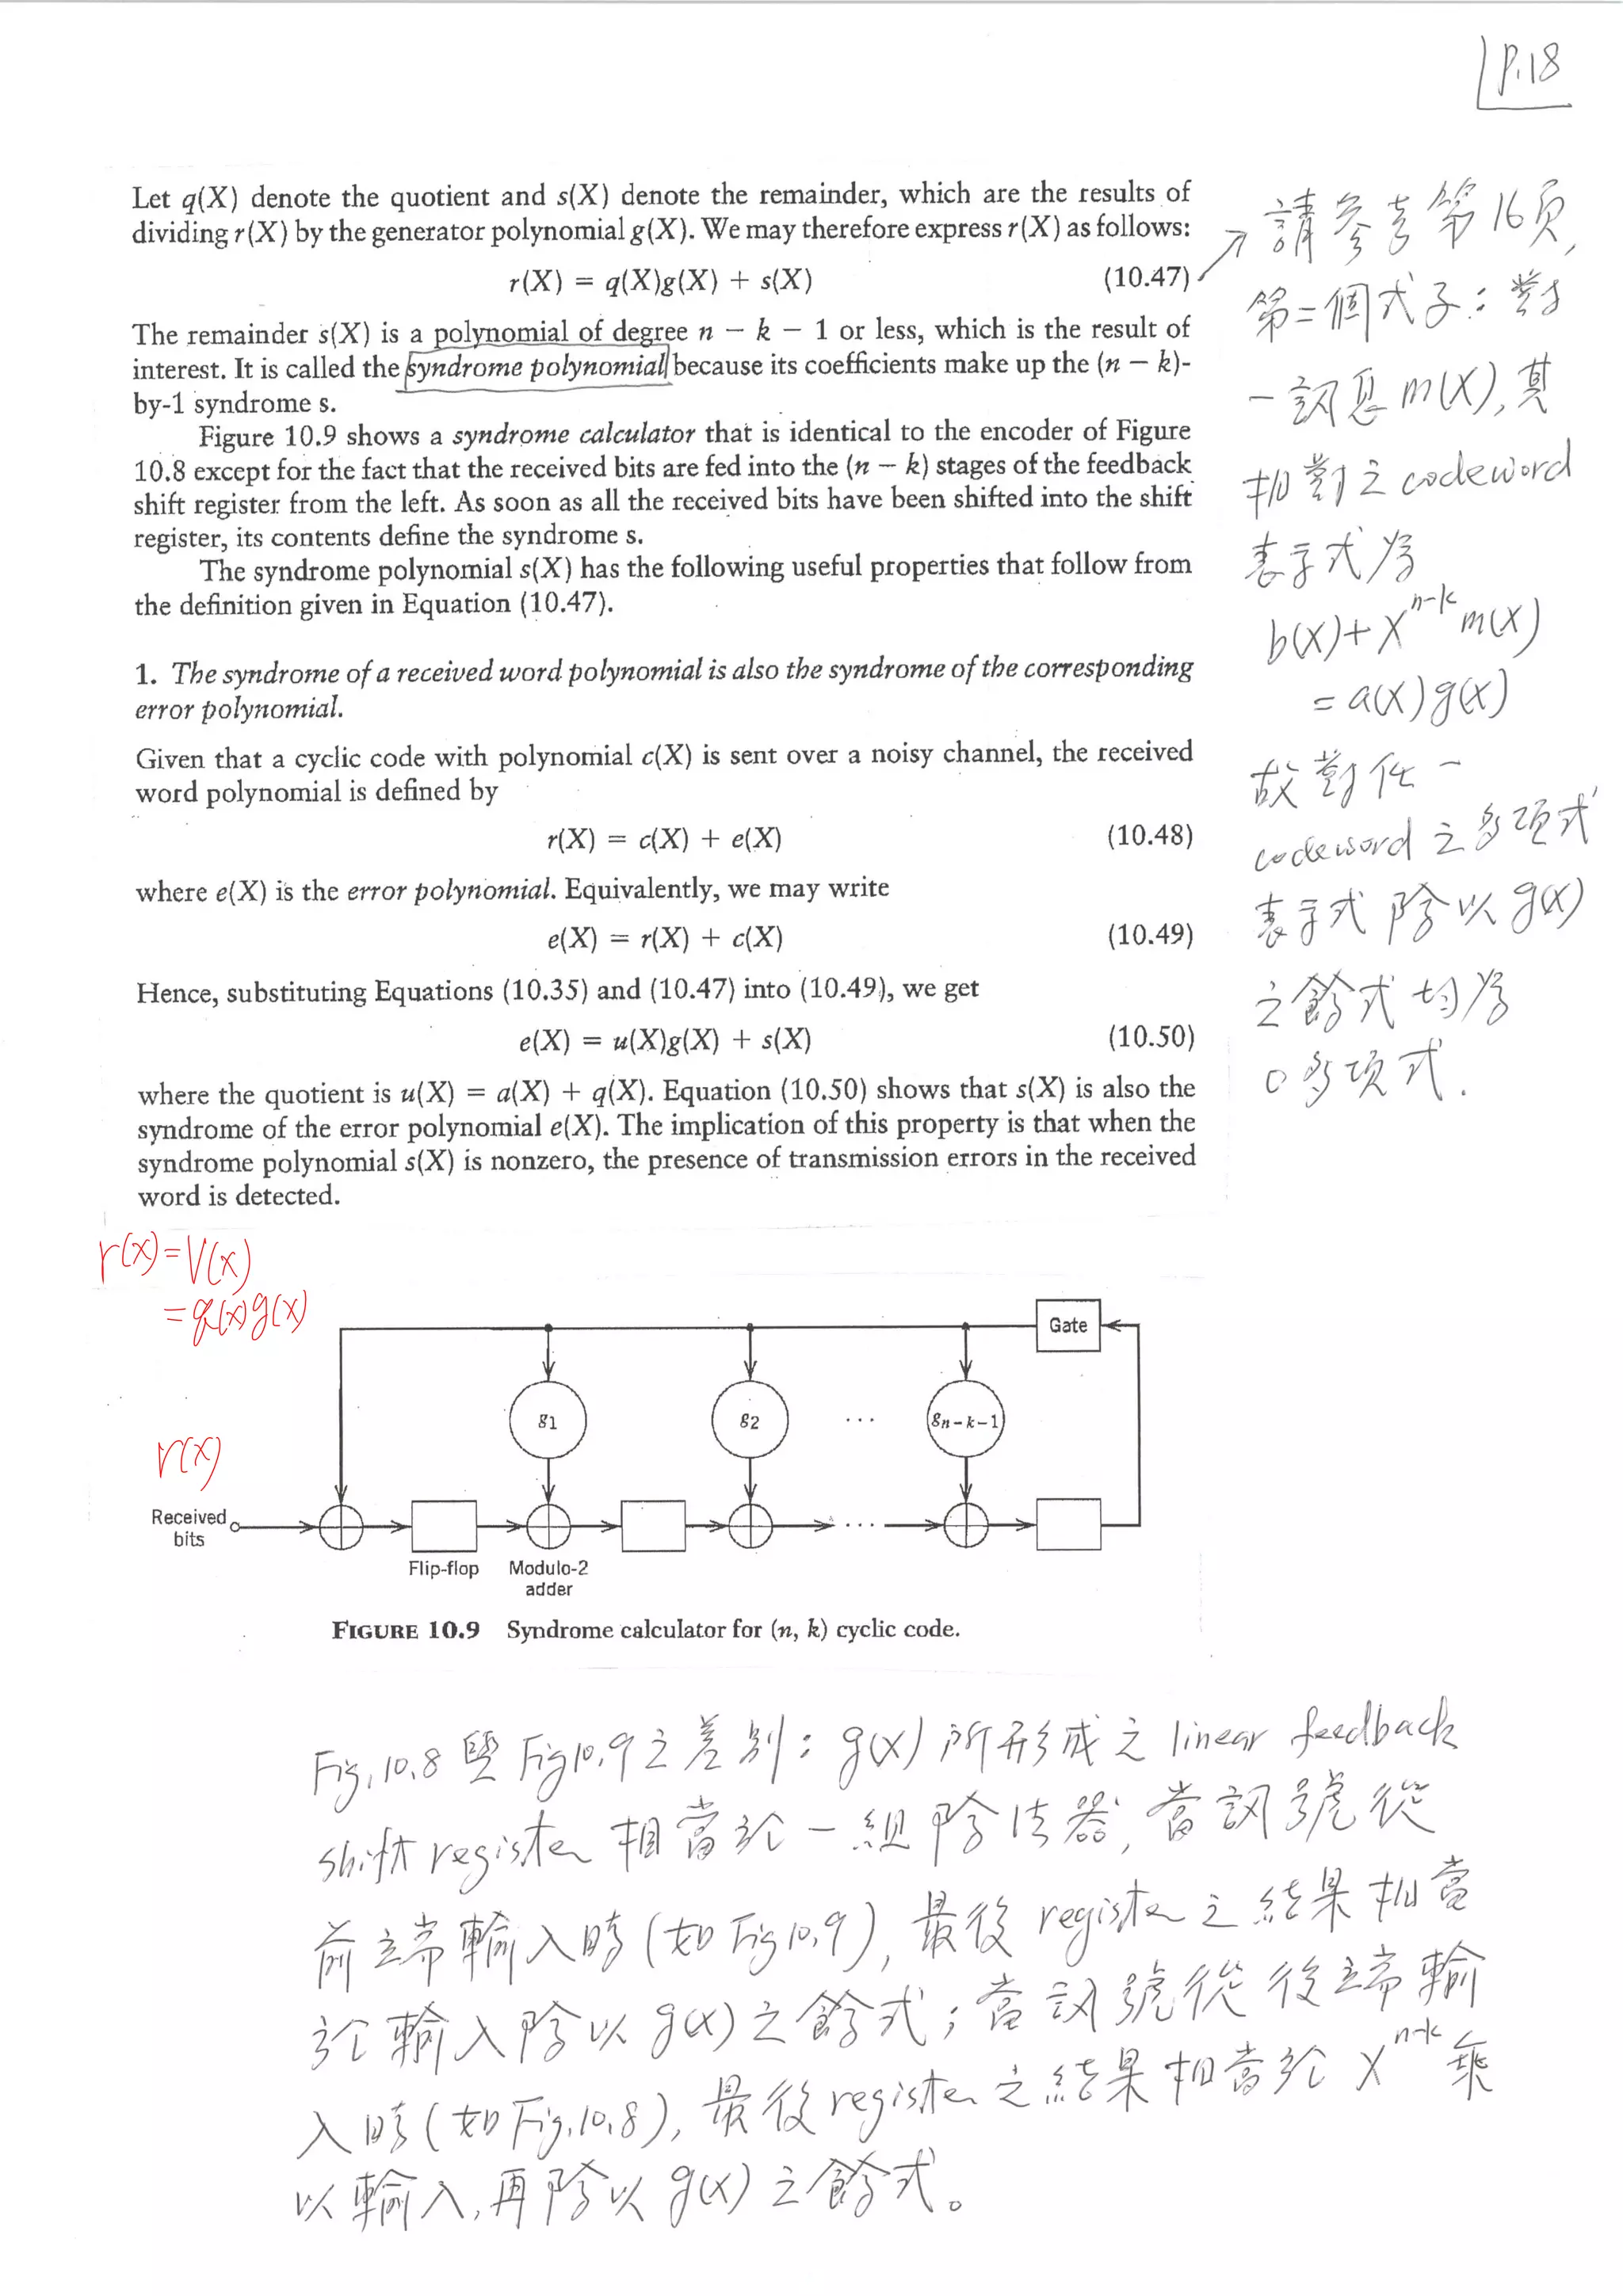 p.18
Let q(X) denote the quotient and s(X) denote the remainder, which are the results of
dividing r(X) by the generator polynomial g(X). We may therefore express r(X) as follows:
r(X) = q(X)g(X) + s(X) (10.47)
The remainder s(X) is a polynomial of degree n − k − 1 or less, which is the result of
interest. It is called the syndrome polynomial because its coefficients make up the (n − k)-
by-1 syndrome s.
Figure 10.9 shows a syndrome calculator that is identical to the encoder of Figure
10.8 except for the fact that the received bits are fed into the (n − k) stages of the feedback
shift register from the left. As soon as all the received bits have been shifted into the shift
register, its contents define the syndrome s.
The syndrome polynomial s(X) has the following useful properties that follow from
the definition given in Equation (10.47).
1. The syndrome of a received word polynomial is also the syndrome of the corresponding
error polynomial.
Given that a cyclic code with polynomial c(X) is sent over a noisy channel, the received
word polynomial is defined by
r(X) = c(X) + e(X) (10.48)
where e(X) is the error polynomial. Equivalently, we may write
e(X) = r(X) + c(X) (10.49)
Hence, substituting Equations (10.35) and (10.47) into (10.49), we get
e(X) = u(X)g(X) + s(X) (10.50)
where the quotient is u(X) = a(X) + q(X). Equation (10.50) shows that s(X) is also the
syndrome of the error polynomial e(X). The implication of this property is that when the
syndrome polynomial s(X) is nonzero, the presence of transmission errors in the received
word is detected.
請參考第16頁,
第二個式子:對
一訊息m(X),其
相對之codeword
表示式為
b(X)+X^{n-k}m(X)
=a(X)g(X)
故對任一
codeword之多項式
表示式除以g(X)
之餘式均為
0多項式.
r(X)=V(X)
=q(X)g(X)
Gate
g1
g2
...
gn−k−1
r(X)
Received
bits
...
Flip-flop
Modulo-2
adder
FIGURE 10.9 Syndrome calculator for (n, k) cyclic code.
Fig.10.8與Fig10.9之差別:g(X)所形成之linear feedback
shift register相當於一組除法器,當訊號從
前端輸入時(如Fig10.9),最後register之結果相當
於輸入除以g(X)之餘式;當訊號從後端輸
入時(如Fig.10.8),最後register之結果相當於X^{n-k}乘
以輸入,再除以g(X)之餘式。